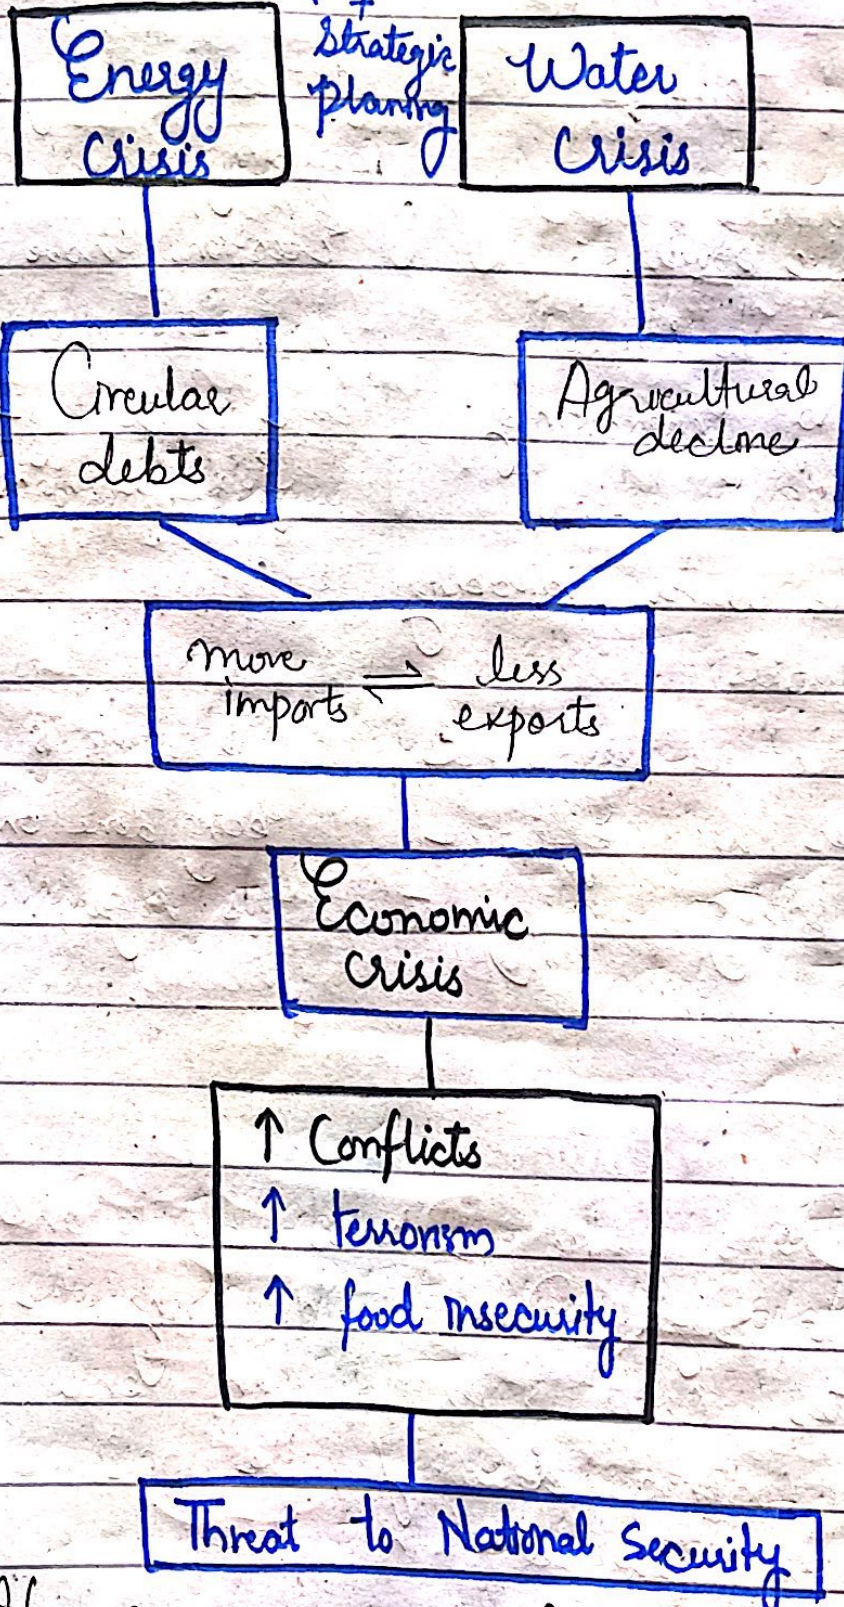 Energy
crisis
Strategic
planing
Water
crisis
Circular
debts
Agricultural
decline
more
imports
⇌
less
exports
Economic
crisis
↑ Conflicts
↑ terrorism
↑ food insecurity
Threat to National Security